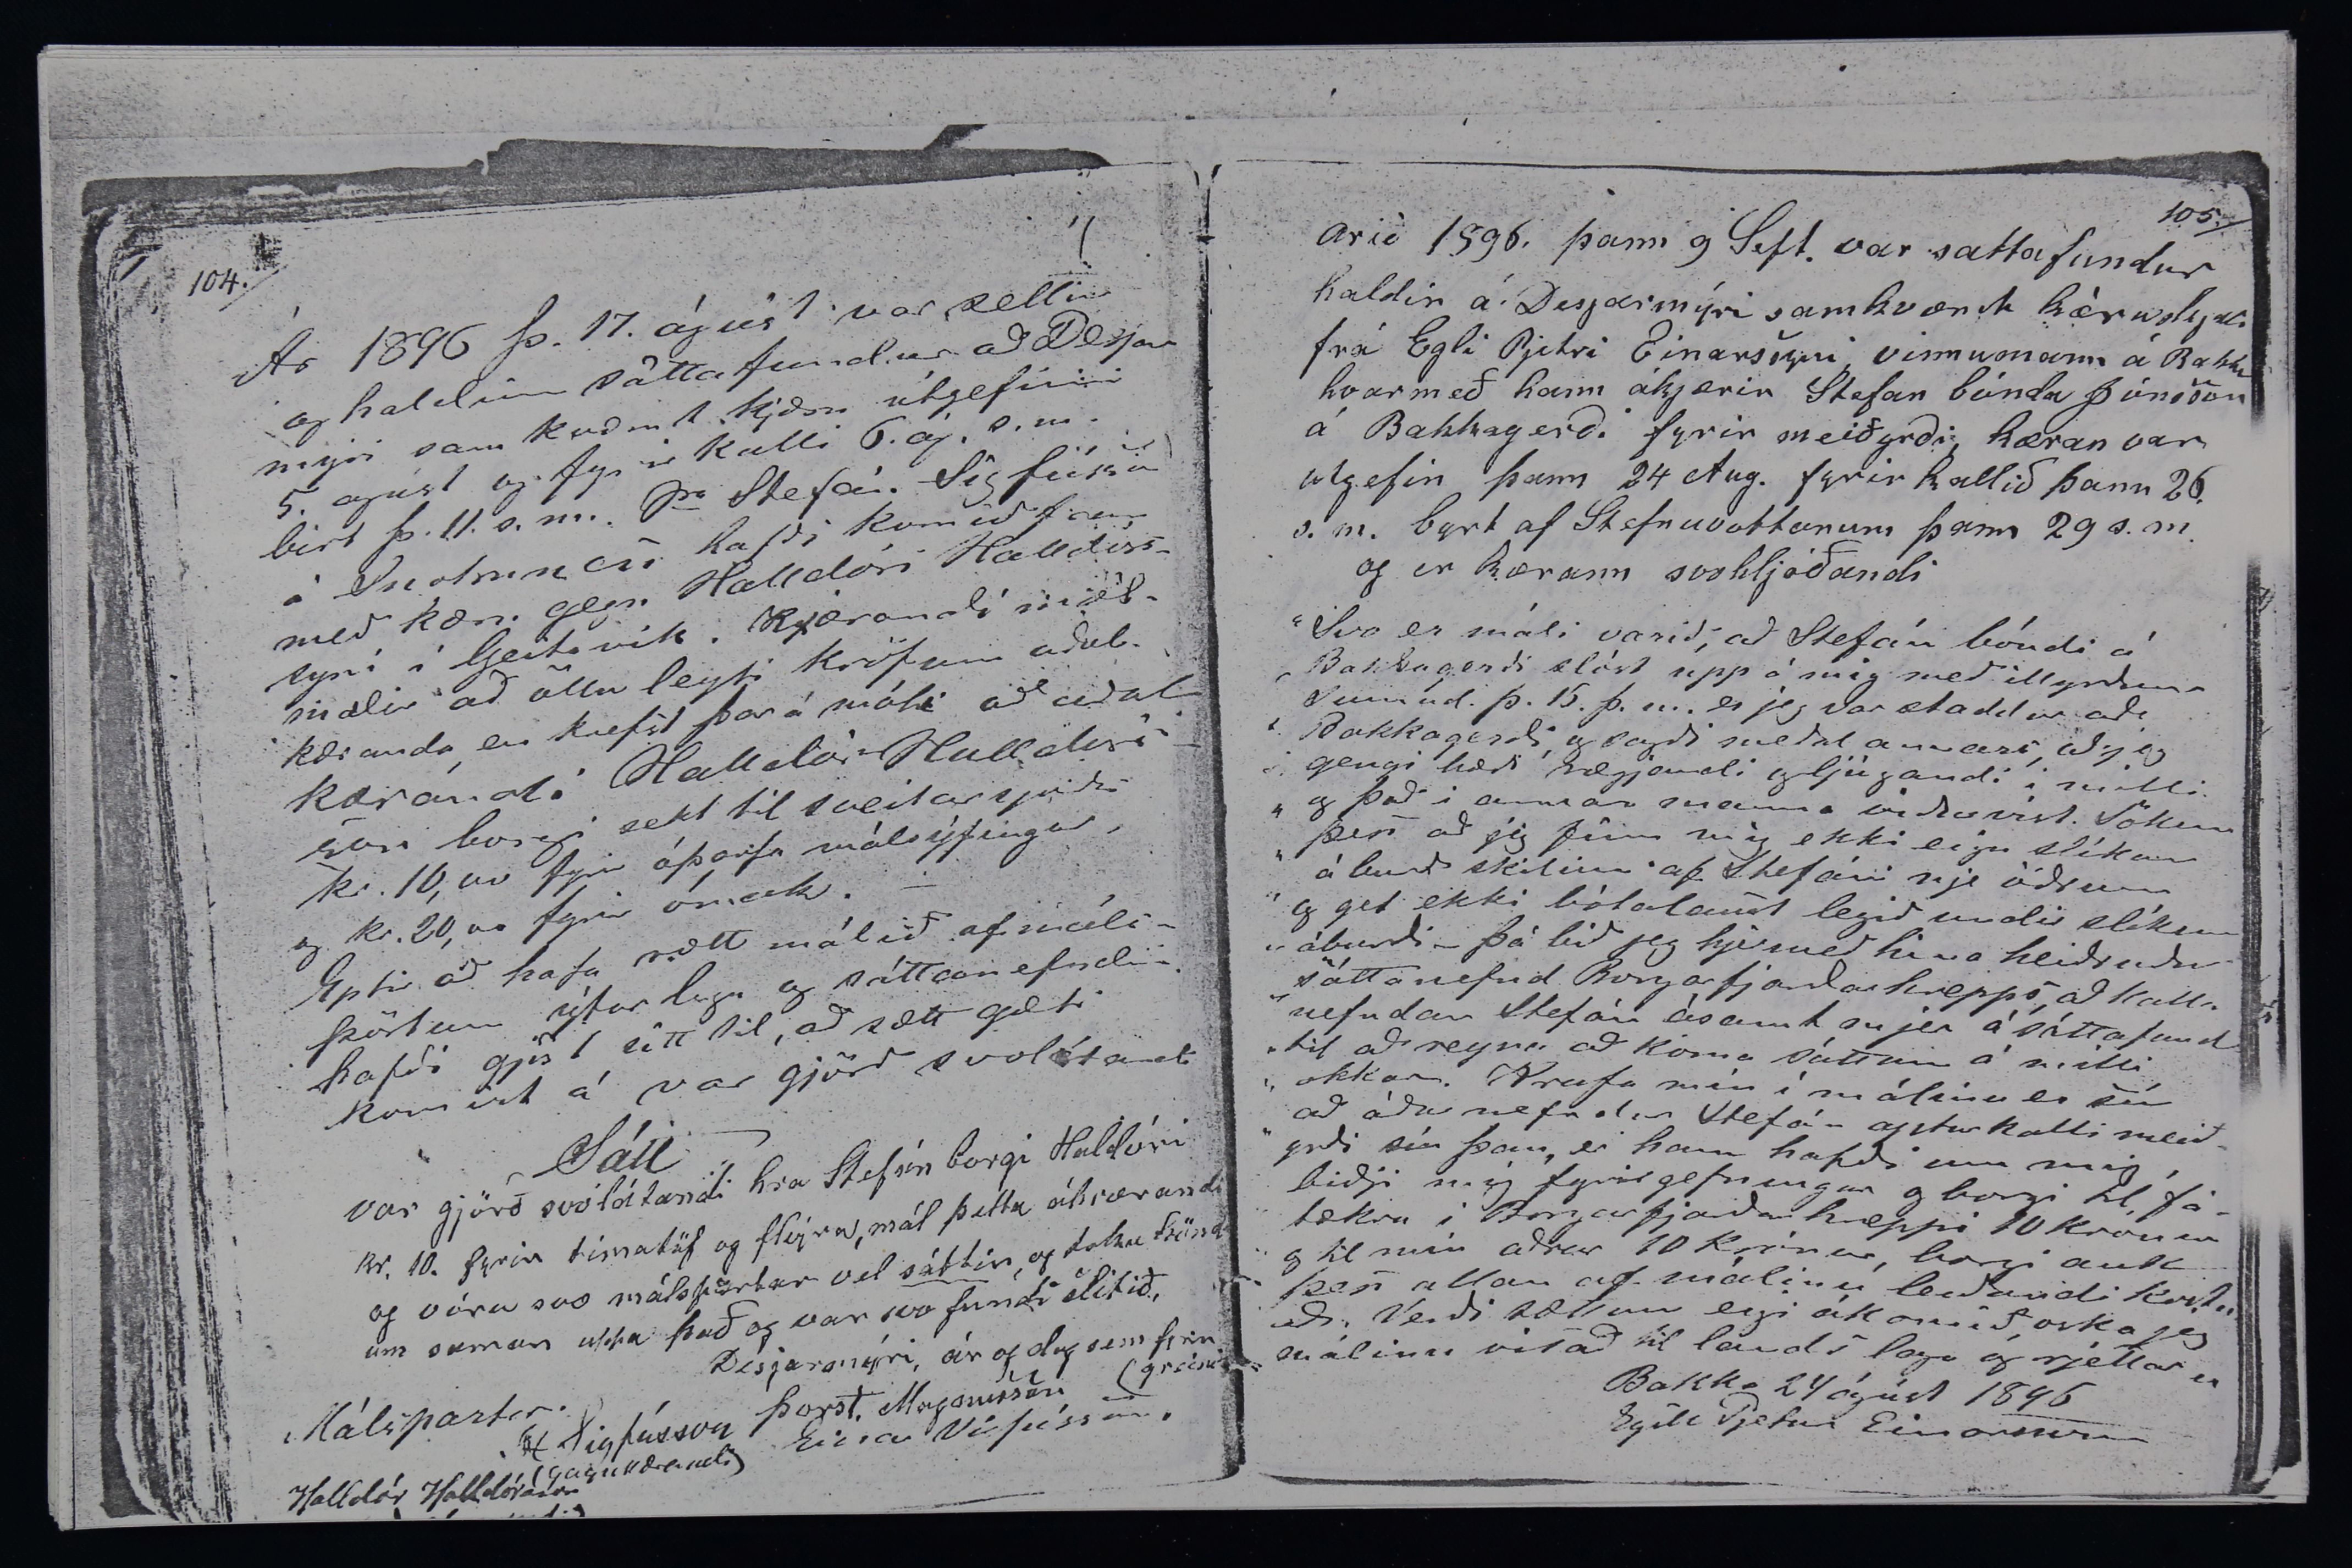 104.
Ár 1896 þ. 17. ágúst var settur
og haldinn sáttafundur að Desjar
mýri samkvæmt kjæru útgefinni
5. agúst og fyrirkalli 6. ág. s.m.
birt þ. 11. s.m. Hra Stefán Sigfússon
á hafði komið fram
með kæru gegn Halldóri Halldórs-
syni í Geitavík. Kjærandi mót-
mælir að öllu leyti kröfum aðal-
kæranda, en krefst þar á móti að aðal
kærandi Halldór Halldórs-
son borgi sekt til sveitarsjóðs
kr. 10,00 fyrir óþarfa málsýfingar,
og kr. 20,00 fyrir ómak.
Eptir að hafa rætt málið af máls-
pörtum ýtarlega og sáttanefndin
hafði gjört sitt til, að sætt gæti
komist á var gjörð svolátandi
Sátt
var gjörð svolátandi hra Stefán borgi Haldóri
kr. 10. fyrir timatöf og fleyra, mál þetta áhrærandi
og vóru svo málspartar vel sáttir, og tóku hönd
um saman uppa það og var svo fundi slitið.
Desjarmýri, ár og dag sem fyrir
greinir
Málspartar.
Þorst. Magnússon
St Sigfússon
Einar Vigfússon.
(gagnkærandi)
Halldór Halldórsson
105.
Arið 1896. þann 9 Seft. var sattafundur
haldin á Desjarmýri samkvæmt kæruskjali
frá Egli Pjetri Einarssyni, vinnumann á Bakka
hvarmeð hann ákjærir Stefan bónda Jónsson
á Bakkagerði fyrir meiðyrði, kæran var
utgefin þann 24 Aug. fyrirkallið þann 26.
s. m. byrt af Stefnuvottunum þann 29 s. m.
og er kærann svohljóðandi
"Svo er máli varið, að Stefán bóndi á
" Bakkagerði slóst upp á mig með illyrðum
sunnud. þ. 15. þ. m. er jeg var staddur að
" Bakkagerði, og sagði meðal annars, að jeg
gengi bæði rægjandi og ljúgandi í milli
" og það í annara manna viðurvist. Sökum
" þess að jeg finn mig ekki eiga slíkan
" áburð skilinn af Stefáni nje öðrum
" og get ekki bótalaust legið undir slíkum
" áburði - þá bið jeg hjermeð hina heiðruðu
" sáttanefnd Borgarfjarðarhrepps, að kalla
" nefndan Stefán ásamt mjer á sáttafund
" til að reyna að koma sáttum á milli
" okkar. Krafa mín í málinu er sú
að áður nefndur Stefán apturkalli meið-
" yrði sín þau, er hann hafði um mig,
biðji mig fyrirgefningar og borgi til fá-
tækra í Borgarfjarðarhreppi 10 krónur
" og til mín aðrar 10 krónur, borgi auk
þess allan af málinu leiðandi kostn
að. Verði sættum eigi ákomið óska jeg
málinu vísað til lands laga og rjettar
Bakka 24 ágúst 1896
Egill Pjetur Einarsson